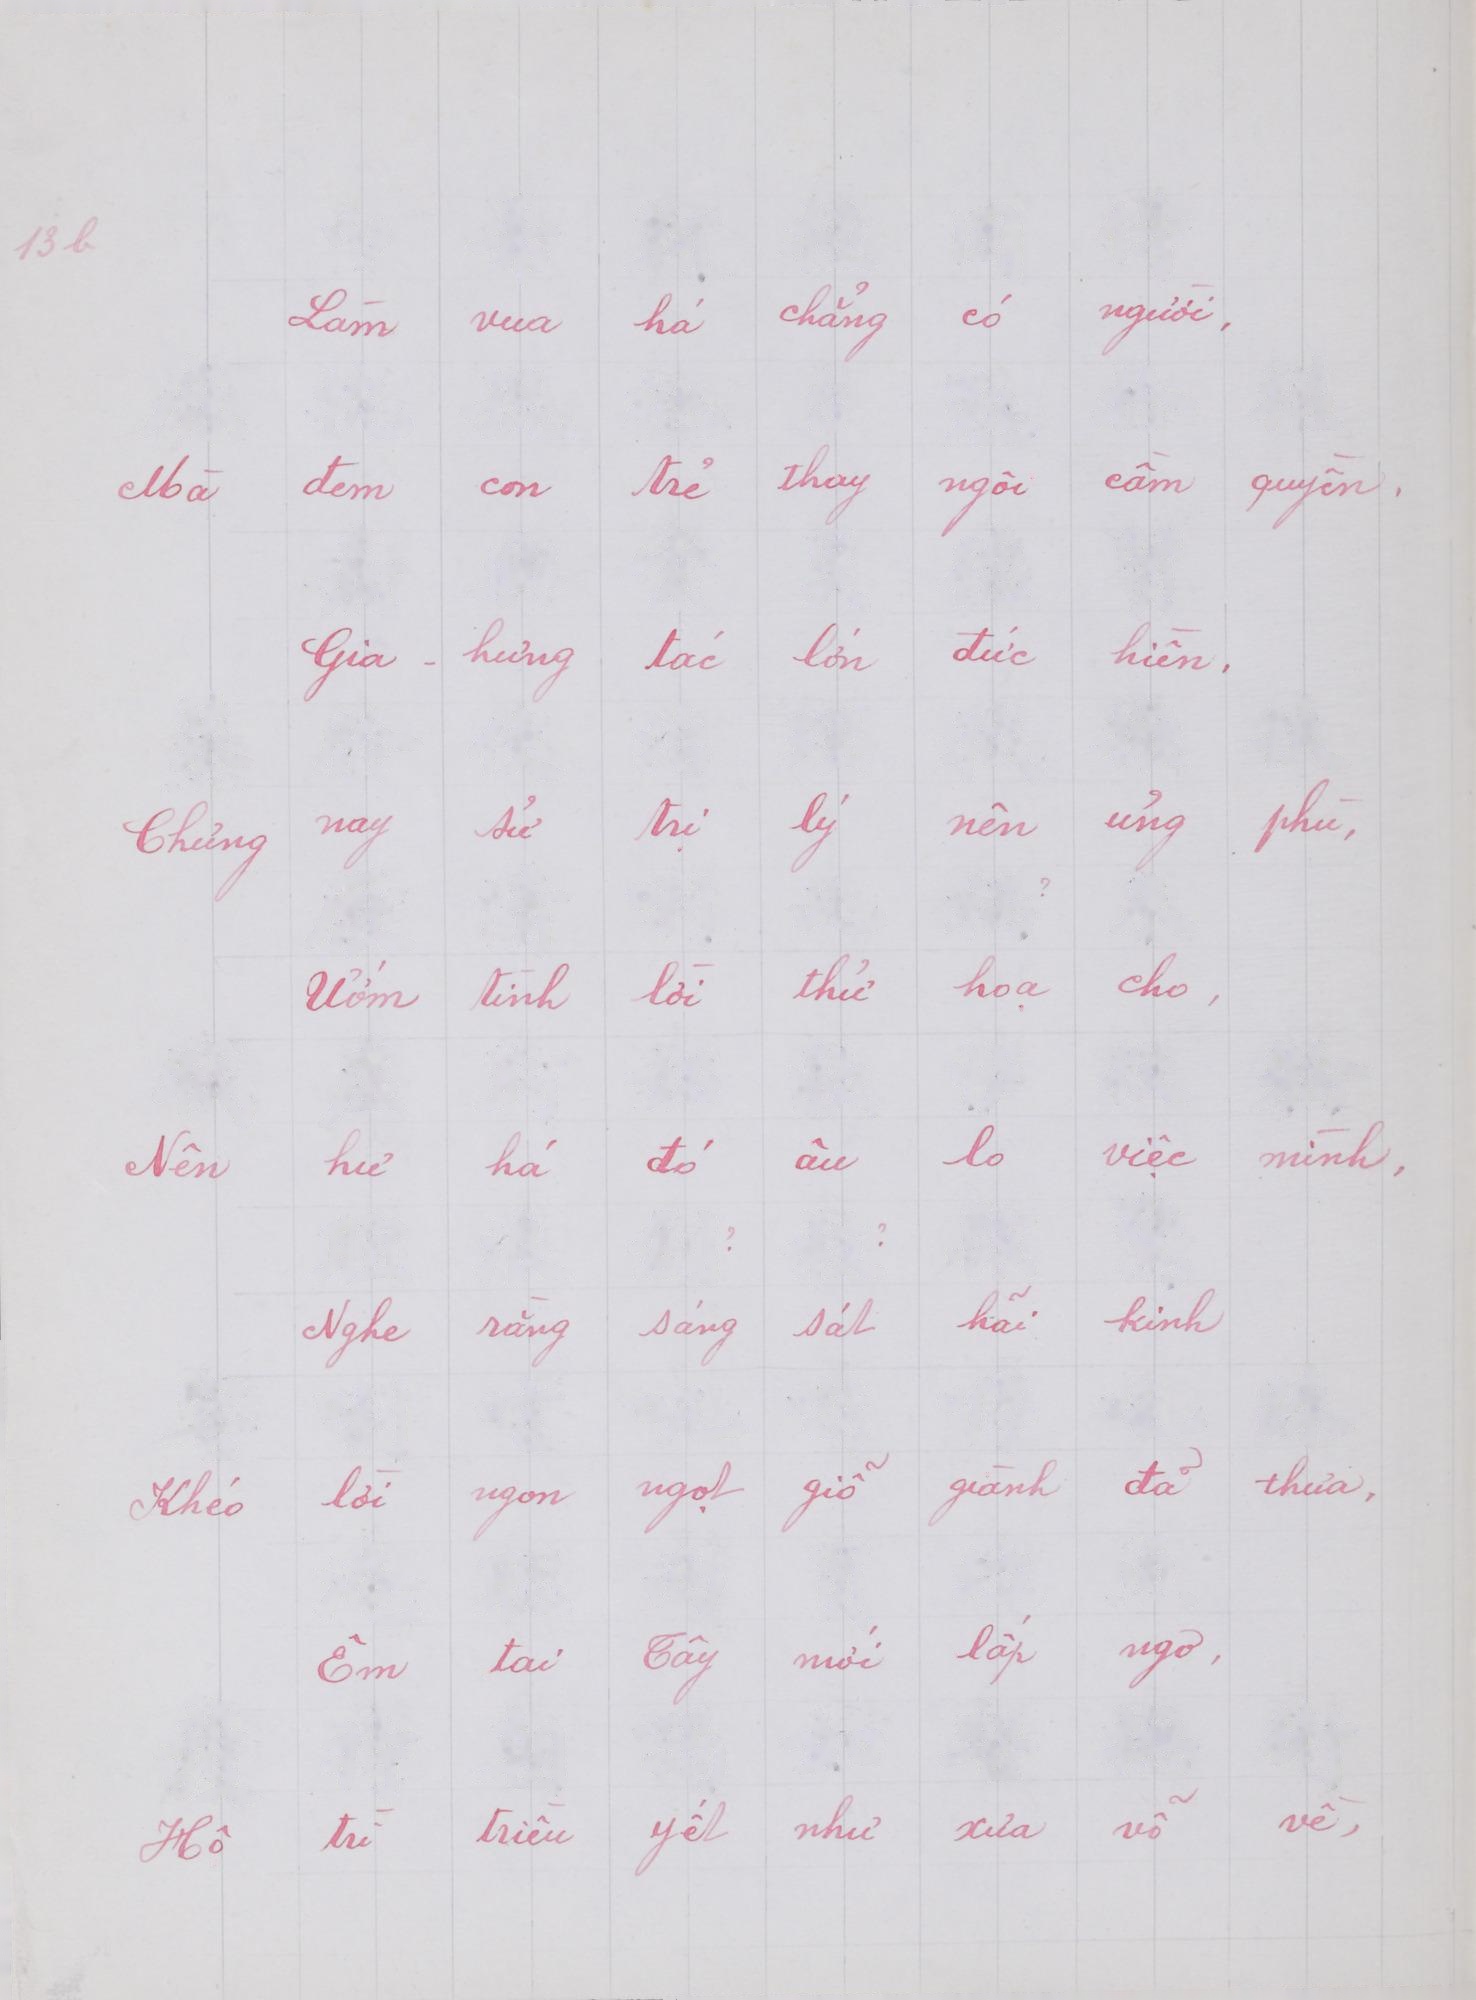 13b
Làm vua há chẳng có người,
Mà đem con trẻ thay ngôi cầm quyền,
Gia - hưng tác lớn đức hiền,
Chửng nay sử trị lý nên ửng phù,
?
Ướm tình lời thử hoạ cho,
Nên hư há đó âu lo việc mình,
? ?
Nghe rằng sáng sát hãi kinh
Khéo lời ngon ngọt giỗ giành đã thưa,
Êm tai Tây mới lấp ngơ,
Hộ trì triều yết như xưa vỗ về,